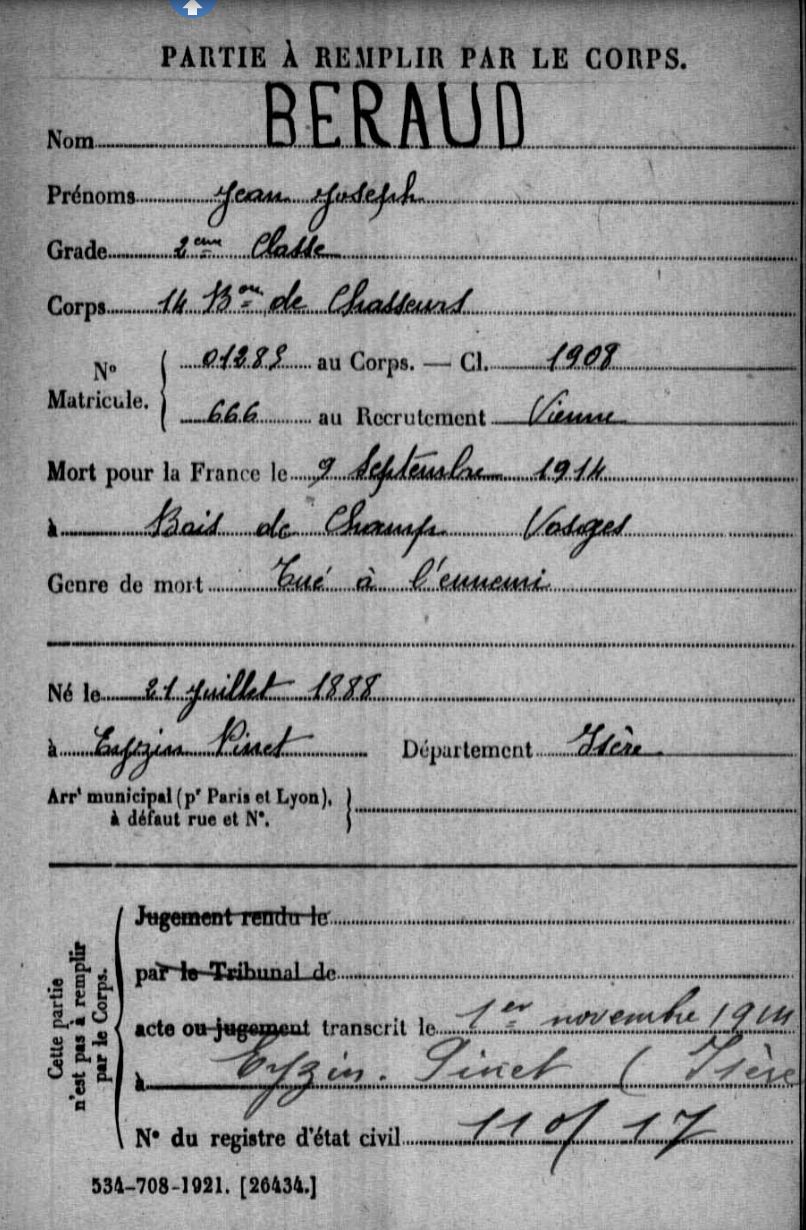 PARTIE À REMPLIR PAR LE CORPS.
Nom BERAUD
Prénoms Jean Joseph
Grade 2ème Classe
Corps 14 Bon de Chasseurs
No Matricule. 01285 au Corps. — Cl. 1908
666 au Recrutement Vienne
Mort pour la France le 9 Septembre 1914
à Bois de Champ Vosges
Genre de mort Tué à l'ennemi
Né le 21 Juillet 1888
à Eyzin Pinet Département Isère
Arrt municipal (pr Paris et Lyon),
à défaut rue et No.
Cette partie
n'est pas à remplir
par le Corps.
Jugement rendu le
par le Tribunal de
acte ou jugement transcrit le 1er novembre 1914
à Eyzin-Pinet (Isère
No du registre d'état civil 110/17
534-708-1921. [26434.]